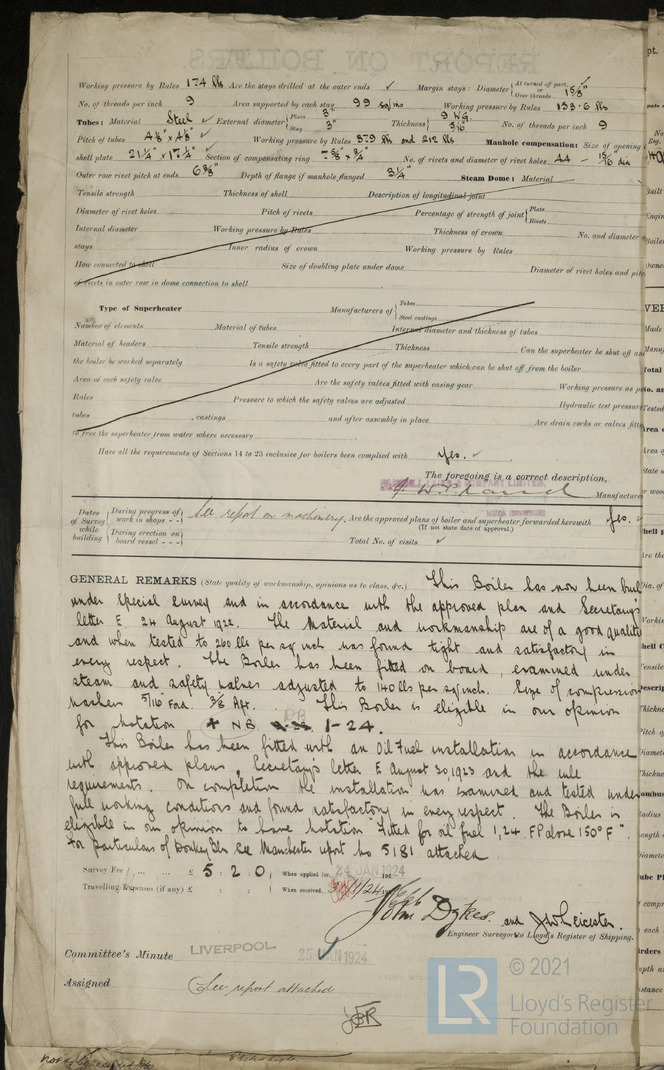 Working pressure by Rules 174 lbs Are the stays drilled at the outer ends ✓ Margin stays: Diameter { At turned off part, or Over threads 1 5/8"
No. of threads per inch 9 Area supported by each stay 99 sq ins Working pressure by Rules 153.6 lbs
Tubes: Material Steel ✓ External diameter { Plain 3" Stay 3" Thickness { 9 WG. 5/16" No. of threads per inch 9
Pitch of tubes 4 1/8" x 4 1/8" ✓ Working pressure by Rules 379 lbs and 212 lbs Manhole compensation: Size of opening
shell plate 21 1/4" x 17 1/4" ✓ Section of compensating ring 7 5/8" x 3/4" No. of rivets and diameter of rivet holes 44 - 15/16 dia
Outer row rivet pitch at ends 6 3/8" Depth of flange if manhole flanged 3 1/4" Steam Dome: Material
Tensile strength Thickness of shell Description of longitudinal joint
Diameter of rivet holes Pitch of rivets Percentage of strength of joint { Plate Rivets
Internal diameter Working pressure by Rules Thickness of crown No. and diameter
stays Inner radius of crown Working pressure by Rules
How connected to shell Size of doubling plate under dome Diameter of rivet holes and pitch
of rivets in outer row in dome connection to shell
Type of Superheater Manufacturers of { Tubes Steel castings
Number of elements Material of tubes Internal diameter and thickness of tubes
Material of headers Tensile strength Thickness Can the superheater be shut off and
the boiler be worked separately Is a safety valve fitted to every part of the superheater which can be shut off from the boiler
Area of each safety valve Are the safety valves fitted with easing gear Working pressure as per
Rules Pressure to which the safety valves are adjusted Hydraulic test pressure
tubes , castings and after assembly in place Are drain cocks or valves fitted
to free the superheater from water where necessary
Have all the requirements of Sections 14 to 23 inclusive for boilers been complied with Yes. ✓
The foregoing is a correct description,
Manufacturer
Dates of Survey while building { During progress of work in shops - - See report on machinery. Are the approved plans of boiler and superheater forwarded herewith Yes.
(If not state date of approval.)
During erection on board vessel - - - Total No. of visits ✓
GENERAL REMARKS (State quality of workmanship, opinions as to class, &c.) This Boiler has now been built
under Special Survey and in accordance with the approved plan and Secretary's
letter E 24 August 1922. The Material and workmanship are of a good quality
and when tested to 260 lbs per sq inch was found tight and satisfactory in
every respect. The Boiler has been fitted on board, examined under
steam and safety valves adjusted to 140 lbs per sq inch. Size of compression
washers 5/16 Ford. 3/8 Aft. This Boiler is eligible in our opinion
for notation + NB 1-24.
This Boiler has been fitted with an Oil Fuel installation in accordance
with approved plans, Secretary's letter E August 30, 1923 and the rule
requirements. On completion the installation was examined and tested under
full working conditions and found satisfactory in every respect. The Boiler is
eligible in our opinion to have notation "Fitted for oil fuel 1,24 FP above 150°F".
For particulars of Donkey Blr see Manchester report No 5181 attached
Survey Fee ... ... £ 5 : 2 : 0. When applied for, 24 JAN 1924
Travelling Expenses (if any) £ : : When received, 30/1/24
John Dykes and J W Leicester.
Engineer Surveyors to Lloyd's Register of Shipping.
Committee's Minute LIVERPOOL 25 JAN 1924
Assigned See report attached
© 2021
LR Lloyd's Register
Foundation